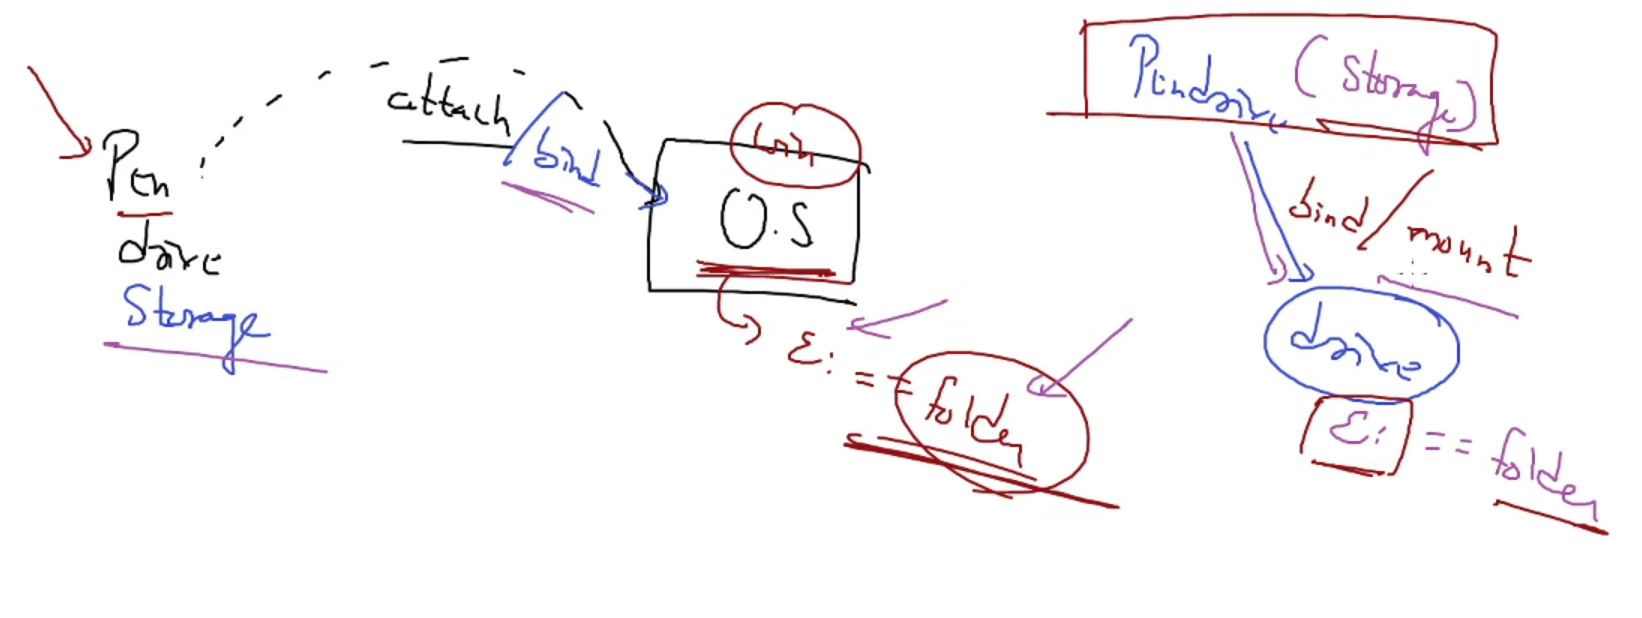 Pen
drive
Storage
attach / bind
O.S
E:
== folder
Pendrive (Storage)
bind / mount
drive
E: == folder